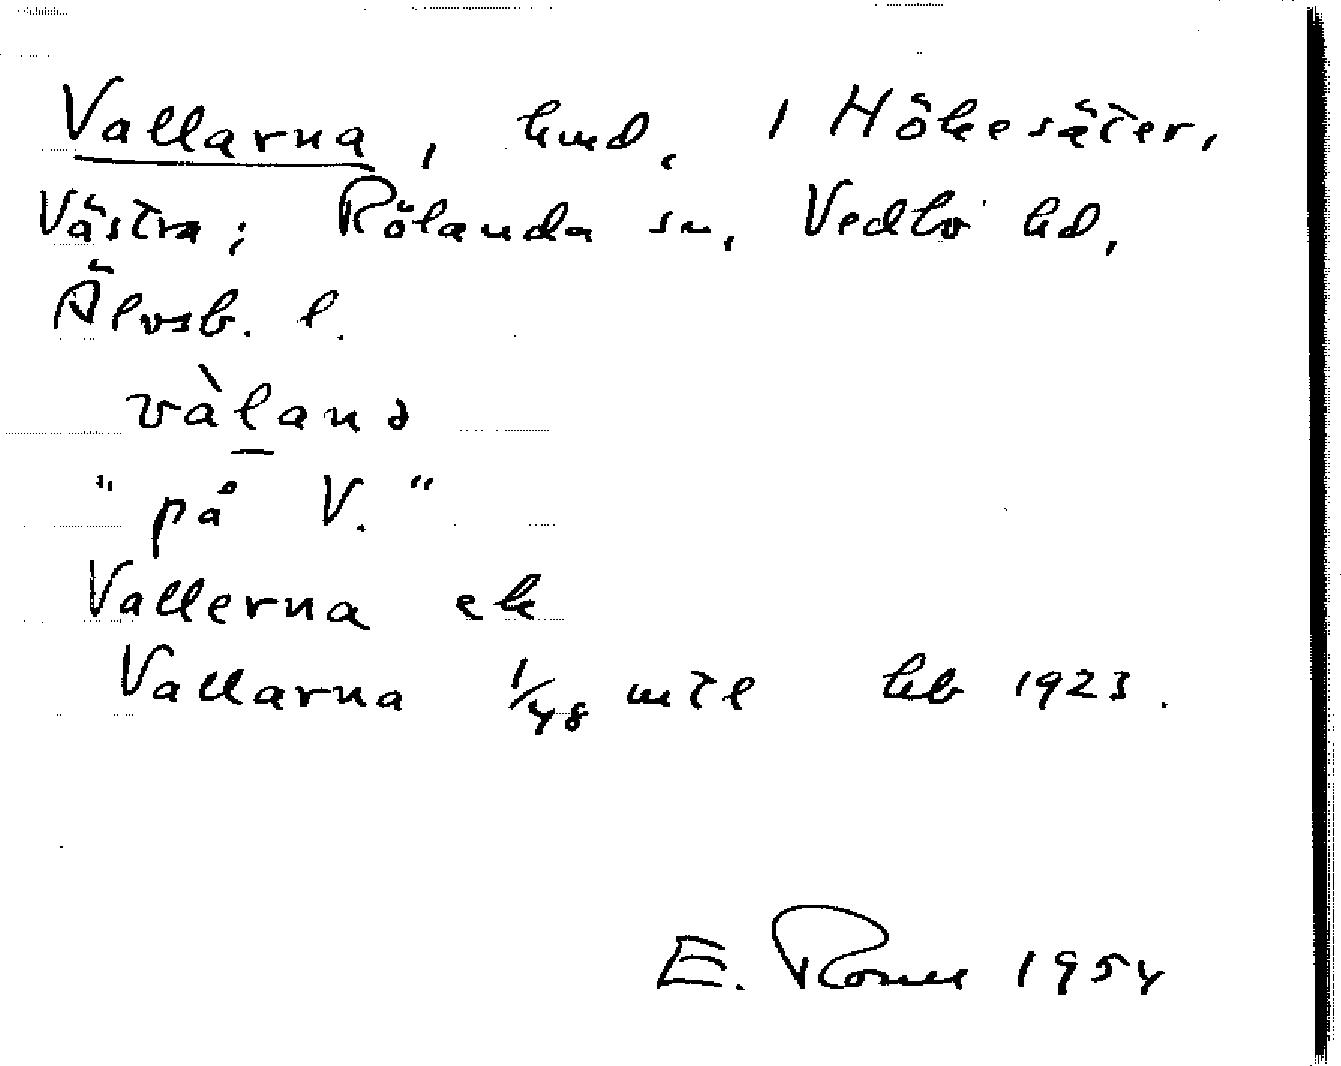 Vallarna, hmd, 1 Hökesäter,
Västra; Rölanda sn, Vedbo hd,
Älvsb. l.
vàlanɔ
"på V."
Vallerna ek
Vallarna 1/48 mtl hb 1923.
E. 1954